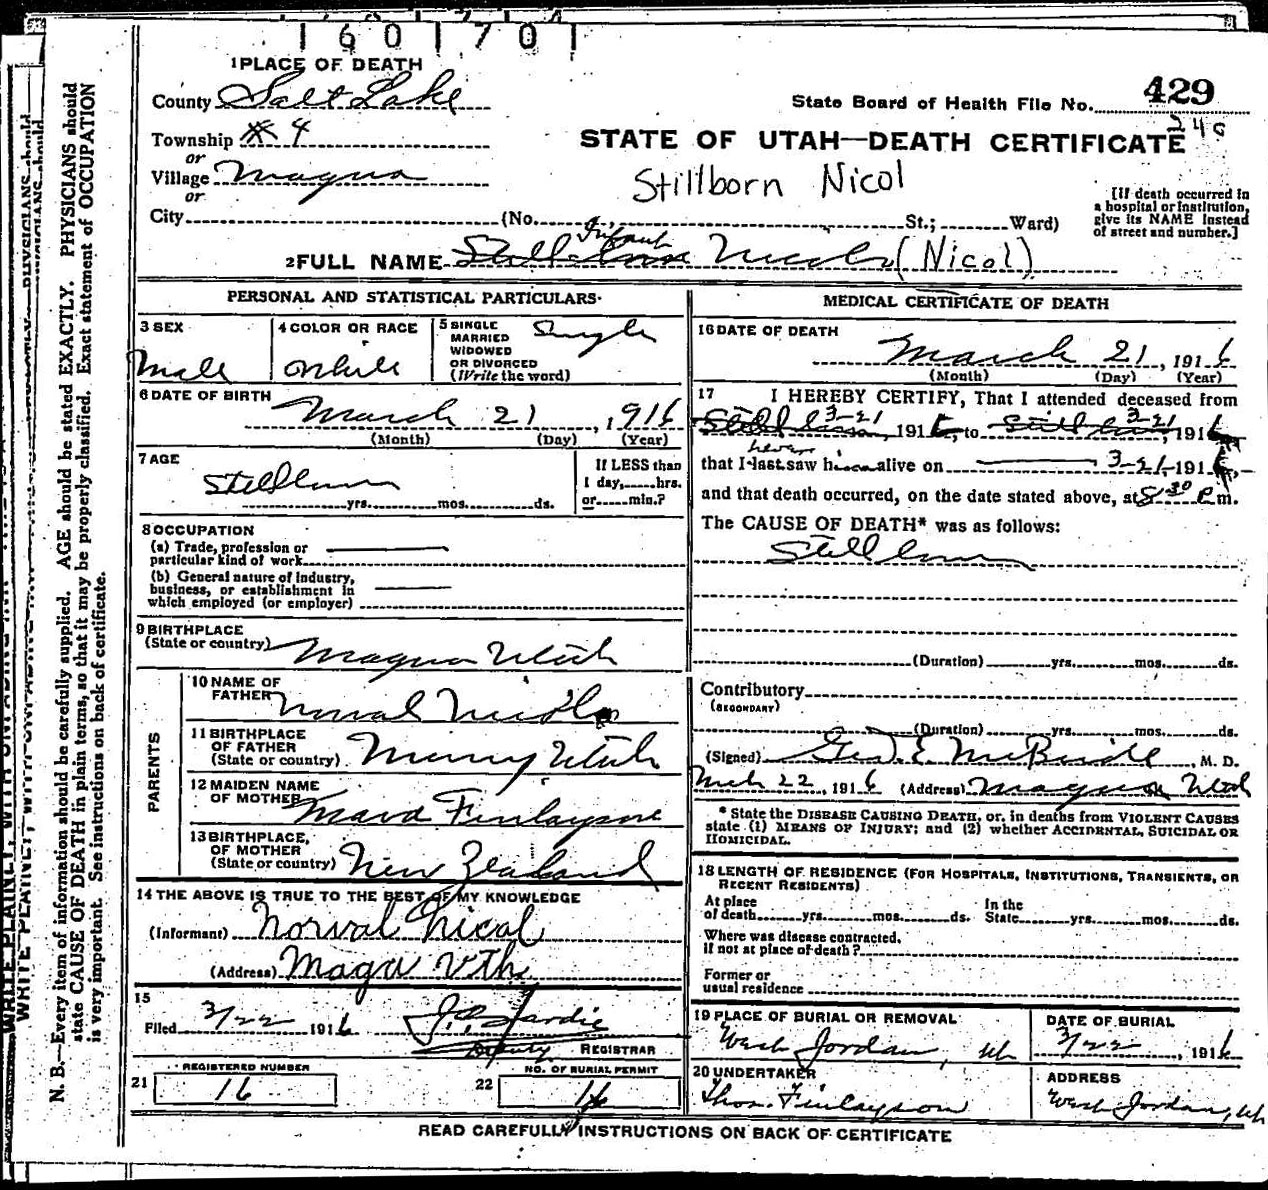 1601701
1 PLACE OF DEATH
County Salt Lake
State Board of Health File No. 429
Township # 4
or
STATE OF UTAH—DEATH CERTIFICATE
Village Magna
or
Stillborn Nicol
[If death occurred in a hospital or institution, give its NAME instead of street and number.]
City (No. St.; Ward)
Infant
2 FULL NAME Stillborn Nicols (Nicol)
PERSONAL AND STATISTICAL PARTICULARS
3 SEX
Male
4 COLOR OR RACE
White
5 SINGLE MARRIED WIDOWED OR DIVORCED (Write the word)
Single
6 DATE OF BIRTH
March 21, 1916
(Month) (Day) (Year)
7 AGE
Stillborn
yrs. mos. ds.
If LESS than
1 day, hrs.
or min.?
8 OCCUPATION
(a) Trade, profession or
particular kind of work
(b) General nature of industry,
business, or establishment in
which employed (or employer)
9 BIRTHPLACE
(State or country) Magna Utah
PARENTS
10 NAME OF
FATHER Norval Nicol
11 BIRTHPLACE
OF FATHER
(State or country) Murray Utah
12 MAIDEN NAME
OF MOTHER Finlayson
13 BIRTHPLACE,
OF MOTHER
(State or country) New Zealand
14 THE ABOVE IS TRUE TO THE BEST OF MY KNOWLEDGE
(Informant) Norval Nicol
(Address) Magna Uth
15
Filed 3/22 1916 J.P. Jardie
Deputy REGISTRAR
REGISTERED NUMBER
21 16
NO. OF BURIAL PERMIT
22 16
MEDICAL CERTIFICATE OF DEATH
16 DATE OF DEATH
March 21, 1916
(Month) (Day) (Year)
17 I HEREBY CERTIFY, That I attended deceased from
3-21 3-21
Stillborn, 1916, to Stillborn, 1916
never
that I last saw him alive on 3-21-1916,
and that death occurred, on the date stated above, at 8:30 P.m.
The CAUSE OF DEATH* was as follows:
Stillborn
(Duration) yrs. mos. ds.
Contributory
(SECONDARY)
(Duration) yrs. mos. ds.
(Signed) Geo. E. McBride, M. D.
Mch 22, 1916 (Address) Magna Utah
* State the DISEASE CAUSING DEATH, or, in deaths from VIOLENT CAUSES
state (1) MEANS OF INJURY; and (2) whether ACCIDENTAL, SUICIDAL OR
HOMICIDAL.
18 LENGTH OF RESIDENCE (FOR HOSPITALS, INSTITUTIONS, TRANSIENTS, OR
RECENT RESIDENTS)
At place In the
of death yrs. mos. ds. State yrs. mos. ds.
Where was disease contracted,
if not at place of death?
Former or
usual residence
19 PLACE OF BURIAL OR REMOVAL
West Jordan, Ut
DATE OF BURIAL
3/22, 1916
20 UNDERTAKER
Thos. Finlayson
ADDRESS
West Jordan, Ut
READ CAREFULLY INSTRUCTIONS ON BACK OF CERTIFICATE
WRITE PLAINLY, WITH UNFADING INK
N. B.—Every item of information should be carefully supplied. AGE should be stated EXACTLY. PHYSICIANS should
state CAUSE OF DEATH in plain terms, so that it may be properly classified. Exact statement of OCCUPATION
is very important. See instructions on back of certificate.